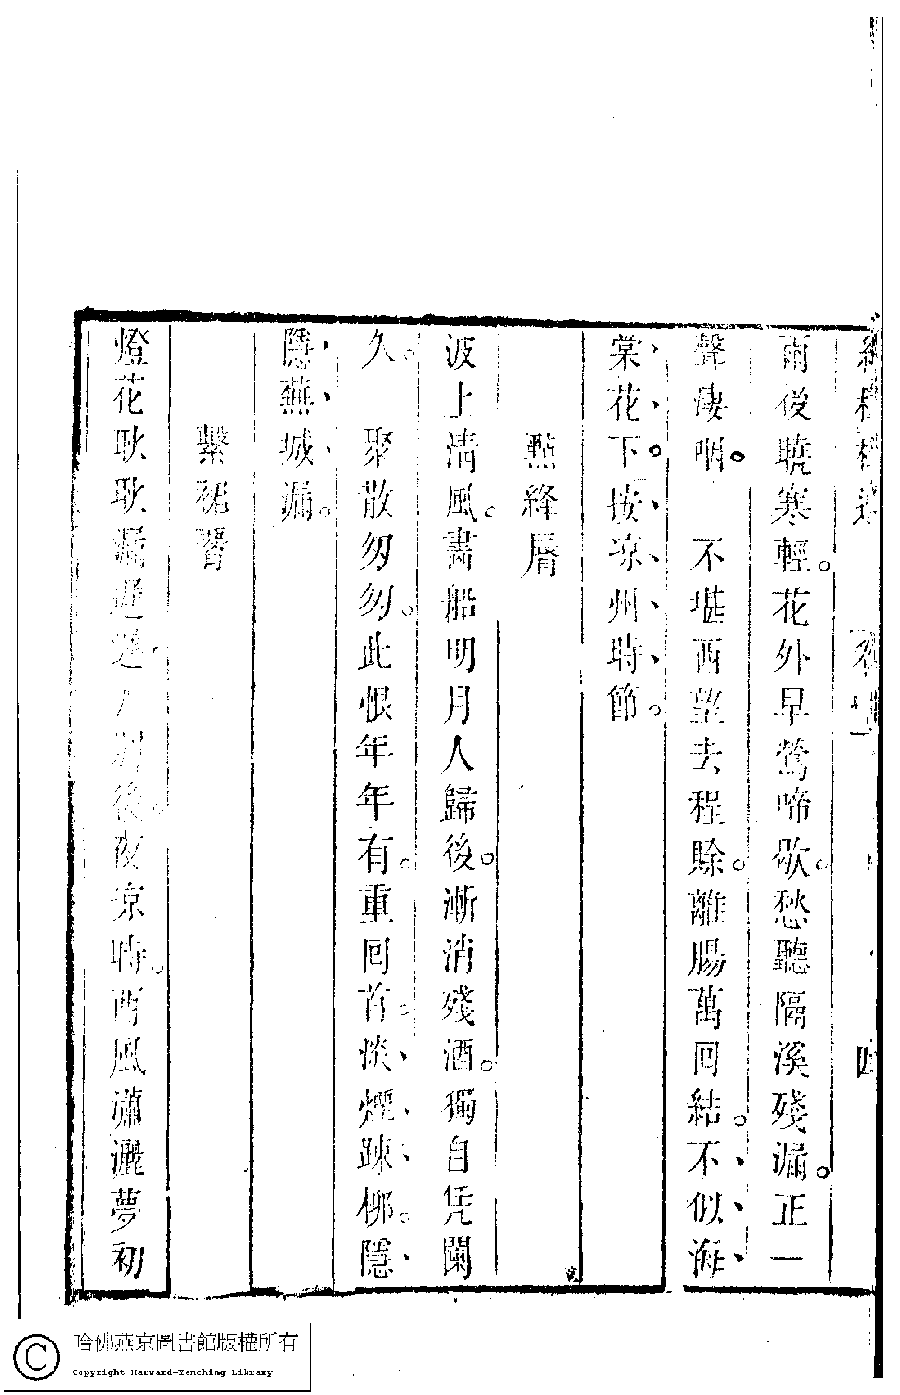 四
雨後曉寒輕。花外早鶯啼歇。愁聽隔溪殘漏。正一
聲淒咽。 不堪西望去程賒。離腸萬回結。不似海
棠花下。按凉州時節。
點絳脣
波上清風。畫船明月人歸後。漸消殘酒。獨自凭闌
久。 聚散匆匆。此恨年年有。重回首。淡煙踈柳。隱
隱蕪城漏。
繫裙腰
燈花耿耿漏遲遲。人別後。夜凉時。西風瀟灑夢初
哈佛燕京圖書館版權所有
Copyright Harvard-Yenching Library